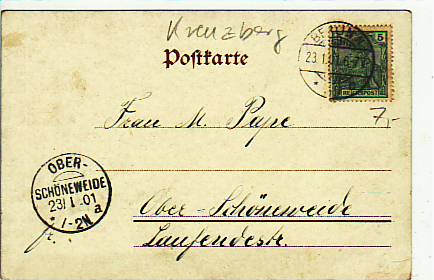 Kreuzberg
Postkarte
BERLIN
23.1.01.6-7
5
REICHSPOST
7,-
Frau M. Pape
OBER-
SCHÖNEWEIDE
23/1.01
*1-2N a
Ober-Schöneweide
Laufenerstr.
fr.